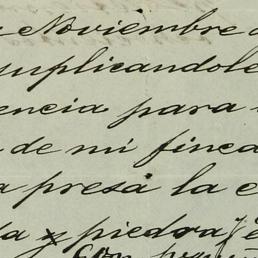 Noviembre
uplicandole
encia para
de mi finca
a presa la
y piedra
con